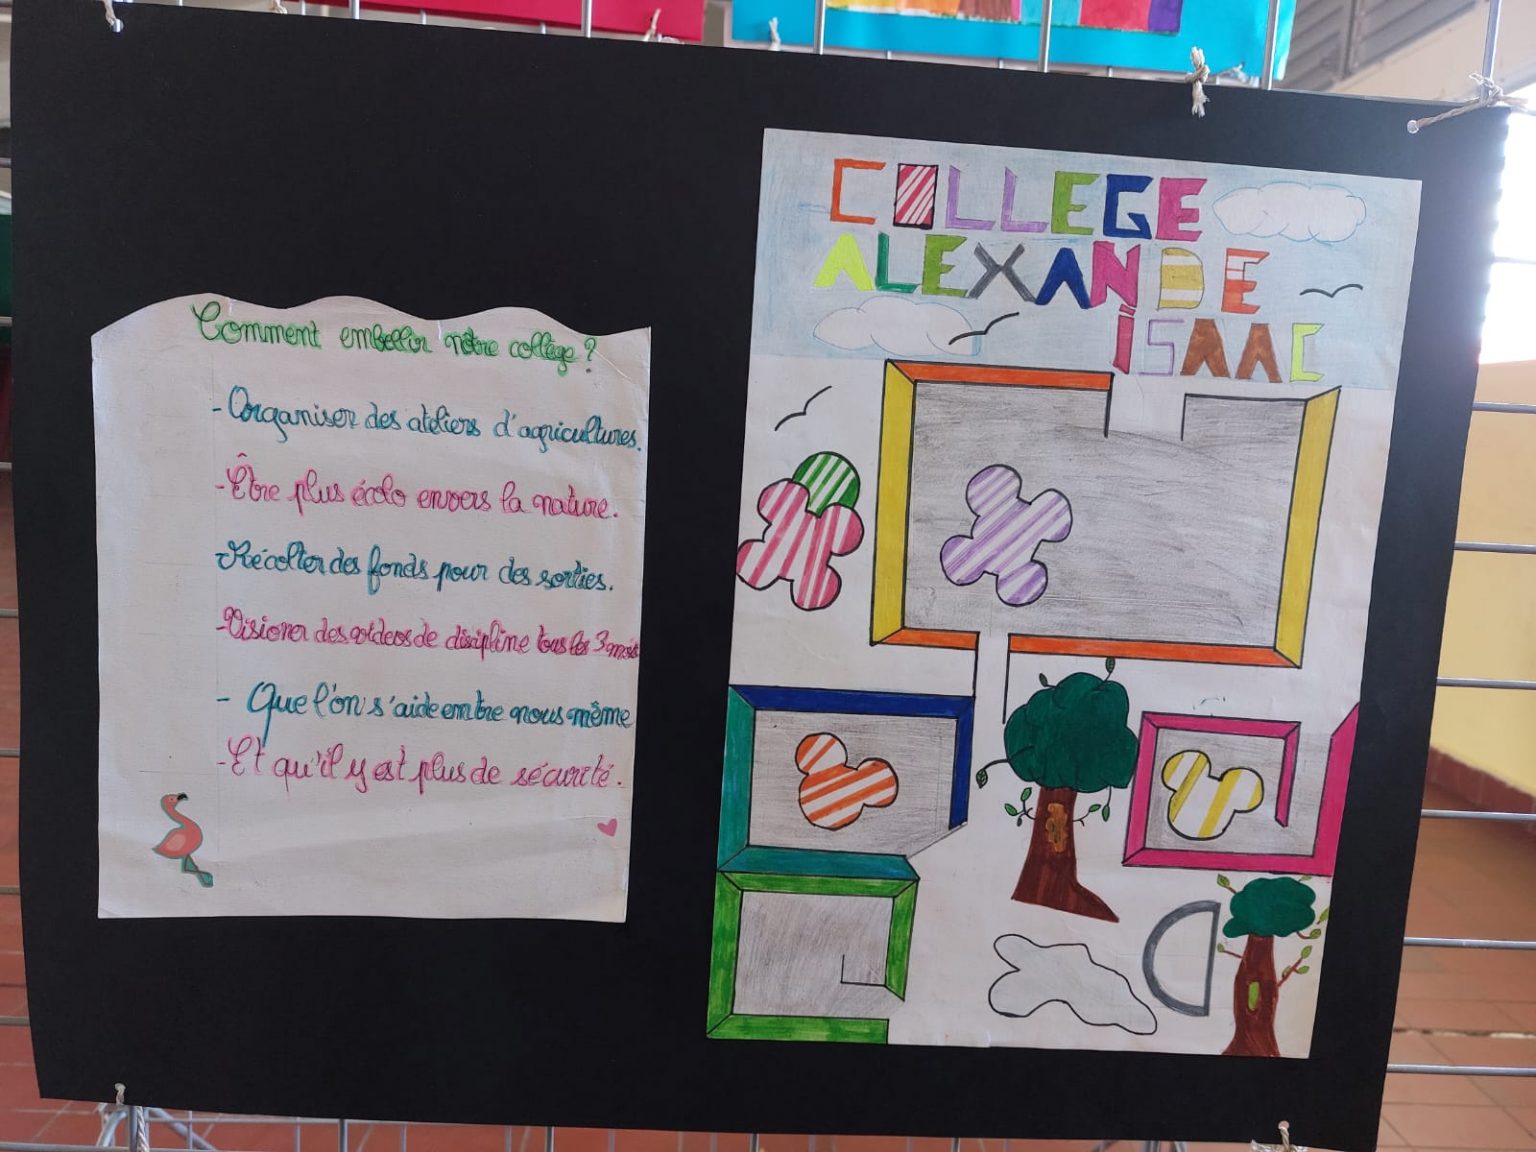 Comment embellir nôtre collège ?
- Organiser des ateliers d'agricultures.
- Être plus écolo envers la nature.
- Récolter des fonds pour des sorties.
- Visioner des videos de discipline tous les 3 mois
- Que l'on s'aide entre nous même
- Et qu'il y est plus de sécurité.
COLLEGE
ALEXANDE
ISAAC